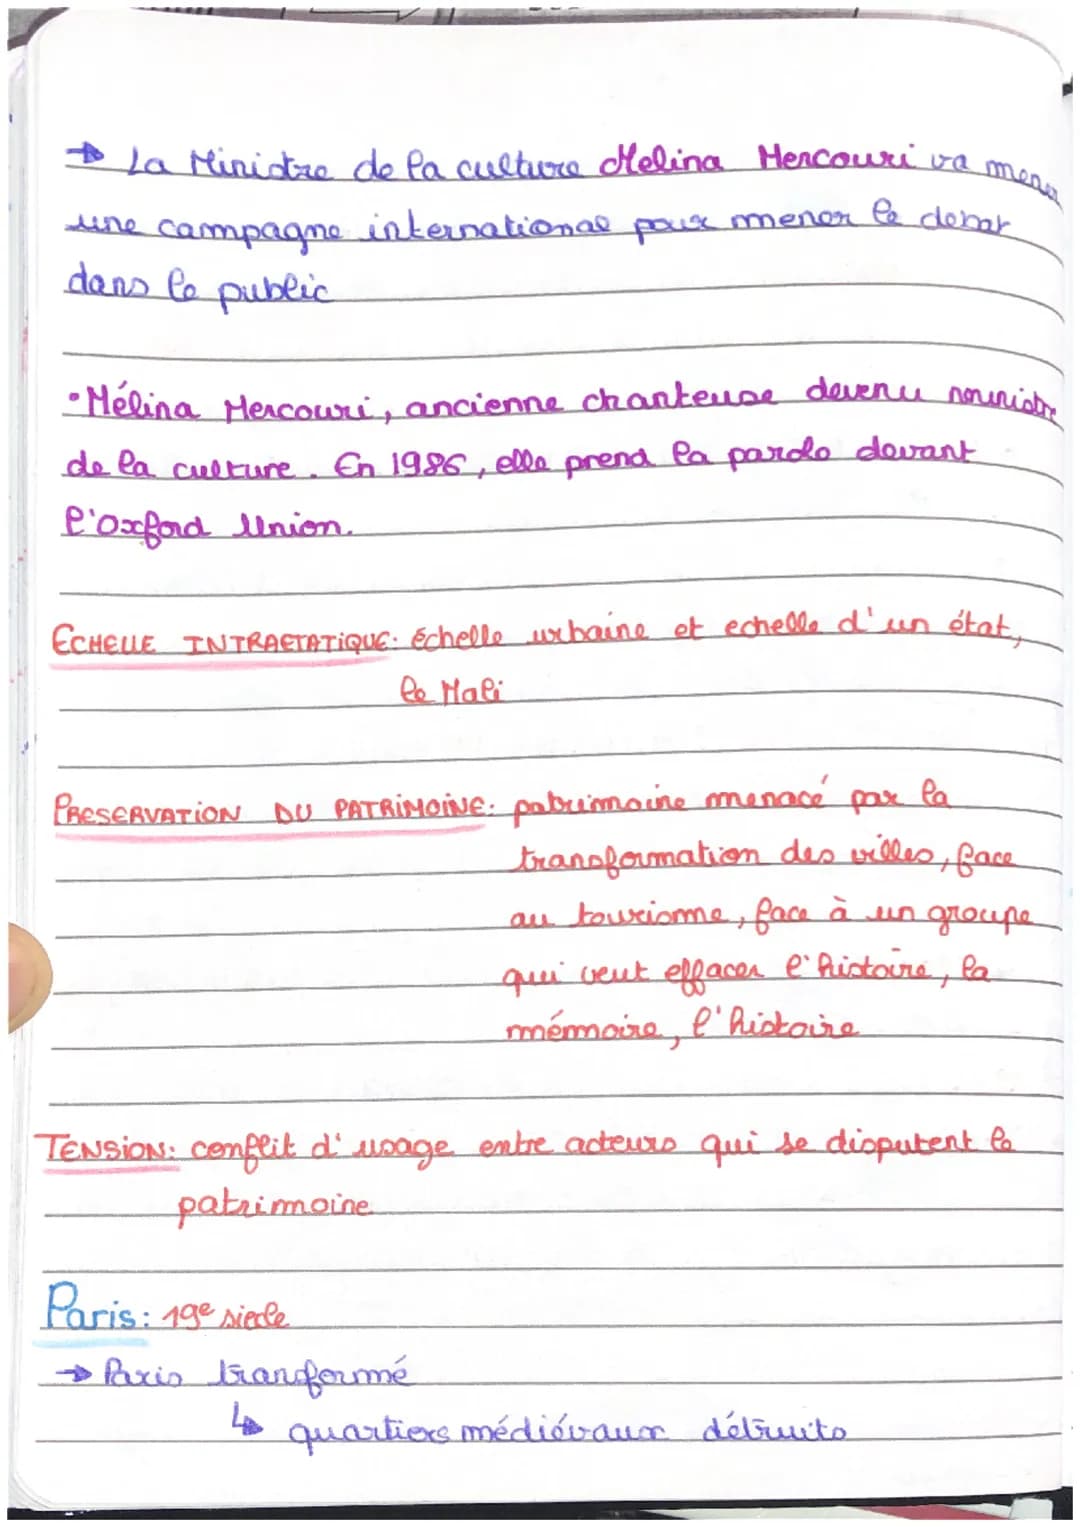 → La Ministre de la culture Melina Mercouri va mener
une campagne international pour mener le débat
dans le public
• Mélina Mercouri, ancienne chanteuse devenu ministre
de la culture. En 1986, elle prend la parole devant
l'Oxford Union.
ECHELLE INTRAETATIQUE: échelle urbaine et echelle d'un état,
le Mali
PRESERVATION DU PATRIMOINE: patrimoine menacé par la
transformation des villes, face
au tourisme, face à un groupe
qui veut effacer l'histoire, la
mémoire, l'histoire
TENSION: conflit d'usage entre acteurs qui se disputent le
patrimoine
Paris: 19e siecle
→ Paris transformé
↳ quartiers médiévaux détruits